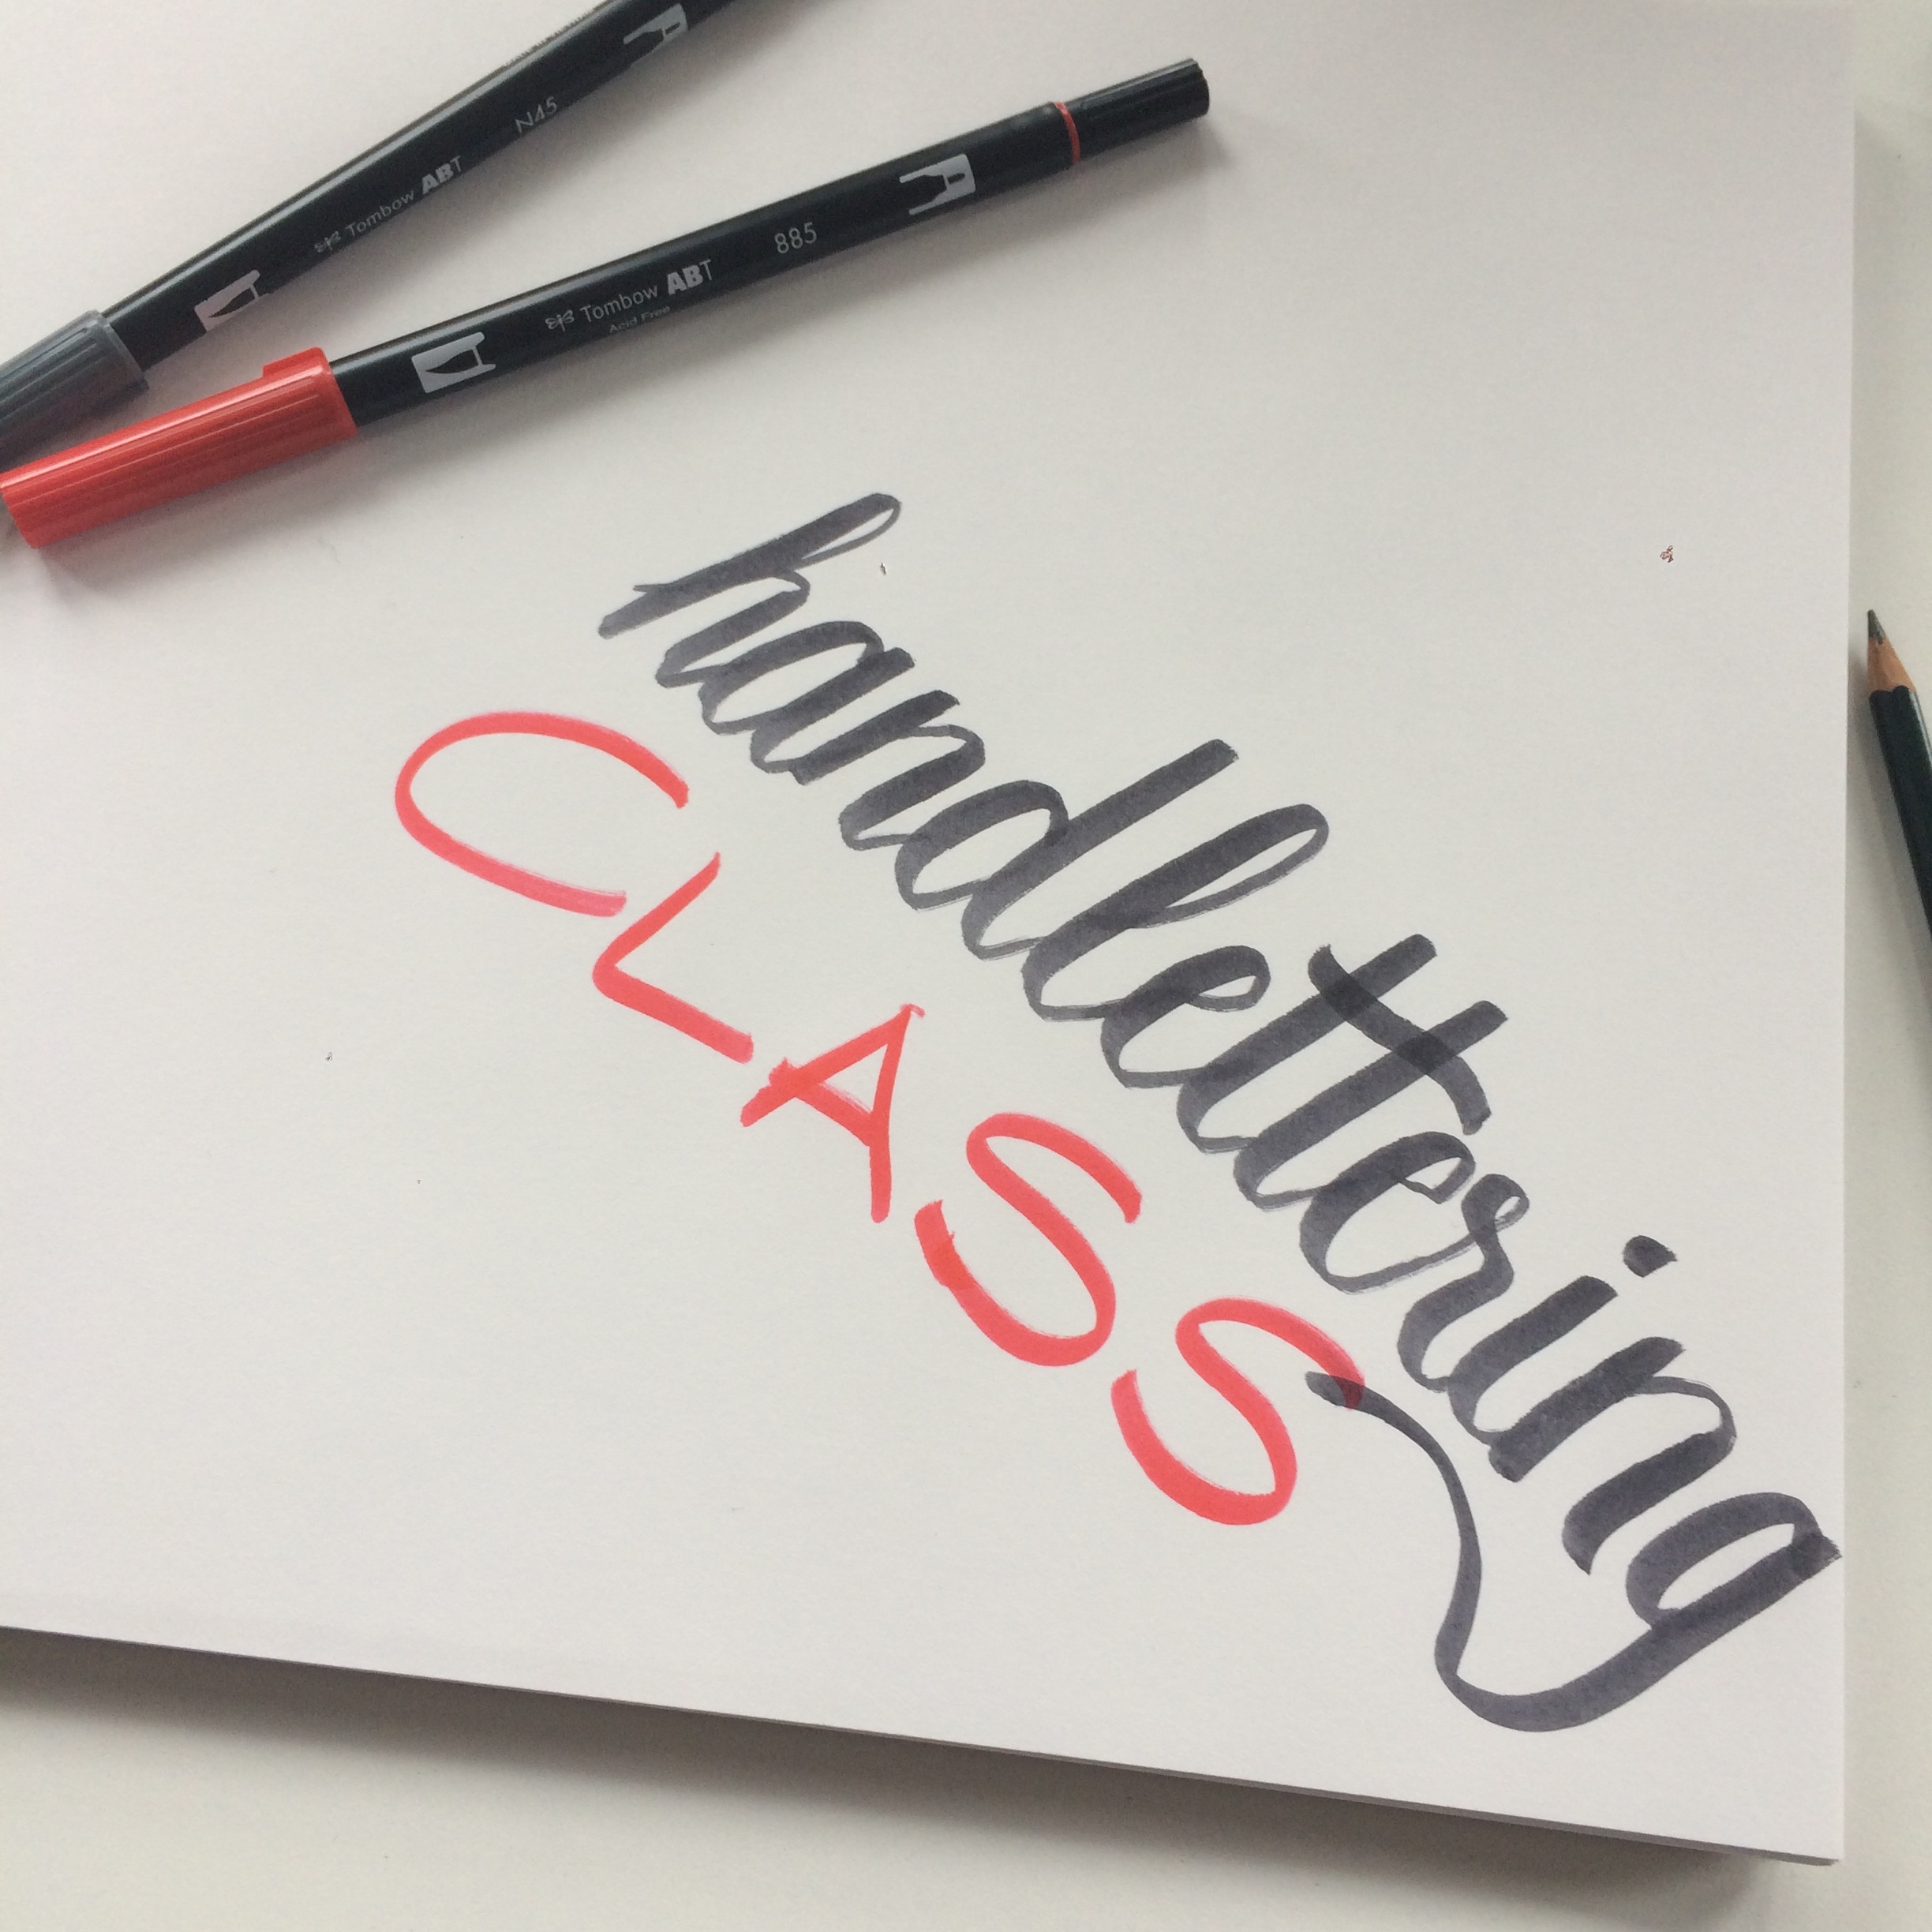 N45
Tombow ABT
885
Tombow ABT
Acid Free
handlettering
CLASS